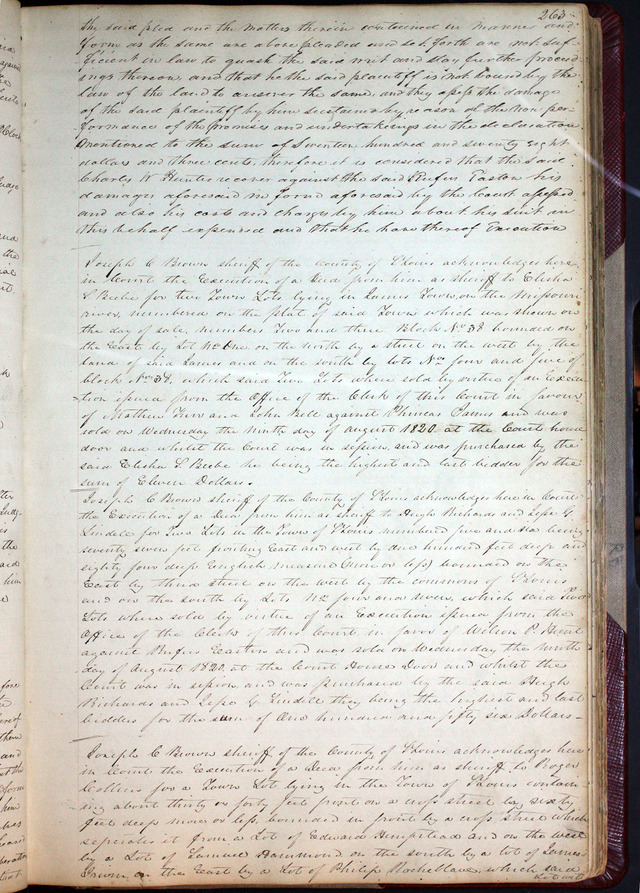 263
the said plea and the matters therein contained in manner and
form as the same are above pleaded and set forth are not suf-
ficient in law to quash the said writ and stay further proceed
ings thereon, and that he the said plaintiff is not bound by the
law of the land to answer the same, and they assess the damage
of the said plaintiff by him sustained by reason of the non per
formance of the promises and undertakings in the declaration
mentioned to the sum of Seventeen hundred and seventy eight
dollars and three cents, therefore it is considered that the said
Charles W Hunter recover against the said Rufus Easton his
damages aforesaid in form aforesaid by the Court assessed
and also his costs and charges by him about his suit in
this behalf expended and that he have thereof Execution
Joseph C Brown sheriff of the County of St Louis acknowledges here
in Court the Execution of a Deed from him as sheriff to Elisha
S Beebe for two Town Lots lying in James Town, on the Missouri
river, numbered on the plat of said Town which was shown on
the day of sale, numbers Two and three Block No 38 bounded on
the East by Lot No One on the north by a street on the west by the
land of said James and on the south by lots Nos four and five of
block No 38, which said Two Lots where sold by virtue of an Execu
tion issued from the Office of the Clerk of this Court in favour
of Mathew and John Bell against Phineas James and was
sold on Wednesday the Ninth day of August 1820 at the Court house
door and whilst the Court was in session, and was purchased by the
said Elisha S. Beebe he being the highest and last bidder for the
sum of Eleven Dollars.
Joseph C Brown sheriff of the County of St Louis acknowledges here in Court
the Execution of a Deed from him as sheriff to Hugh Richards and Jesse G.
Lindell for Two Lots in the Town of St Louis numbered five and six being
seventy seven feet fronting East and west by one hundred feet deep and
eighty four deep English measure (more or less) bounded on the
East by third street on the west by the commons of St Louis
and on the south by Lots No four and seven, which said Two
Lots where sold by virtue of an Execution issued from the
Office of the Clerk of this Court in favor of Wilson P. Hunt
against Rufus Easton and was sold on Wednesday the ninth
day of August 1820 at the Court House Door and whilst the
Court was in session and was purchased by the said Hugh
Richards and Jesse G. Lindell they being the highest and last
bidders for the sum of One hundred and fifty six Dollars-
Joseph C Brown sheriff of the County of St Louis acknowledges here
in Court the Execution of a Deed from him as sheriff to Roger
Collins for a Town Lot lying in the Town of St Louis contain
ing about thirty or forty feet front on a cross street by sixty
feet deep more or less, bounded in front by a cross street which
seperates it from a Lot of Edward Hempstead and on the west
by a Lot of Samuel Hammond on the south by a lot of James
Irwin, on the East by a Lot of Philip Rocheblave, which said